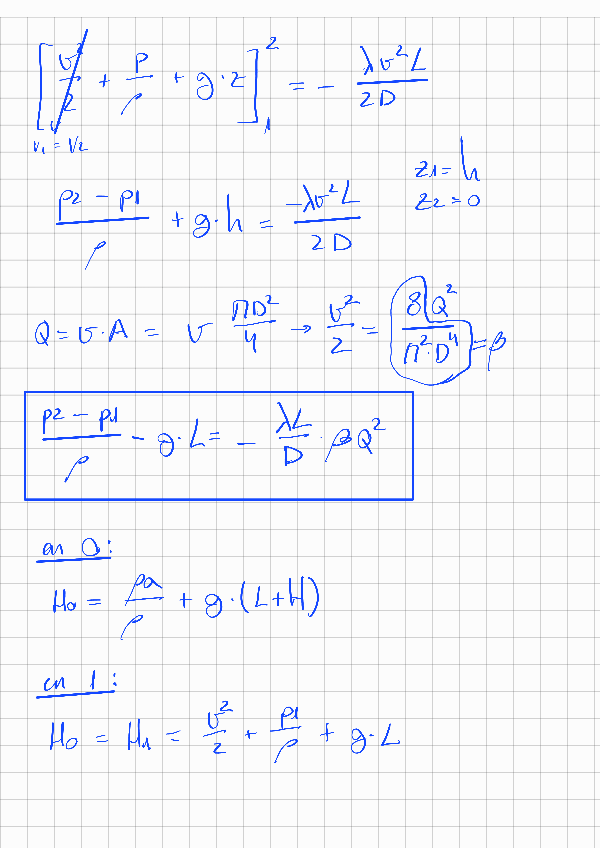 [v²/2 + p/ρ + g·z]₁² = - λv²L/2D
v₁ = v₂
z1 = h
z2 = 0
(p2 - p1)/ρ + g·h = -λv²L/2D
Q = v·A = v ΠD²/4 → v²/2 = 8Q²/(Π²·D⁴) = β
(p2 - p1)/ρ - g·L = - λL/D · βQ²
сл 0:
H₀ = pa/ρ + g·(L+H)
сл 1:
H₀ = H₁ = v²/2 + p1/ρ + g·L